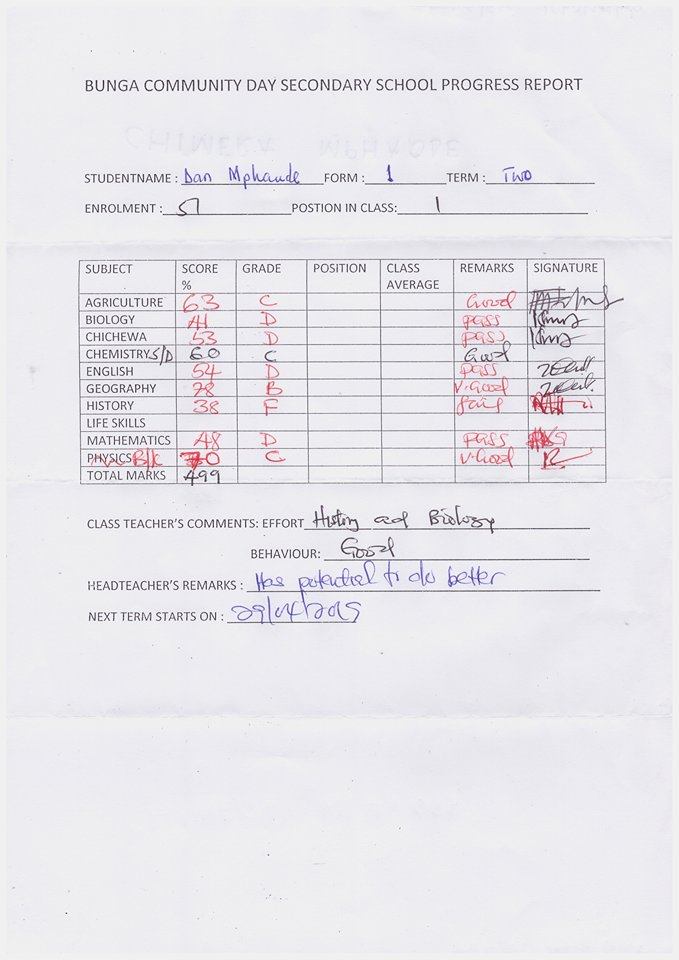 BUNGA COMMUNITY DAY SECONDARY SCHOOL PROGRESS REPORT
STUDENTNAME : Dan Mphande FORM : 1 TERM : Two
ENROLMENT : 51 POSTION IN CLASS: 1
SUBJECT SCORE % GRADE POSITION CLASS AVERAGE REMARKS SIGNATURE
AGRICULTURE 63 C Good
BIOLOGY 41 D pass
CHICHEWA 53 D pass
CHEMISTRY S/D 60 C Good
ENGLISH 54 D pass
GEOGRAPHY 78 B V.Good
HISTORY 38 F fail
LIFE SKILLS
MATHEMATICS 48 D pass
PHYSICS B/K 70 C V.Good
TOTAL MARKS 499
CLASS TEACHER'S COMMENTS: EFFORT History and Biology
BEHAVIOUR: Good
HEADTEACHER'S REMARKS : Has potential to do better
NEXT TERM STARTS ON : 29/04/2019